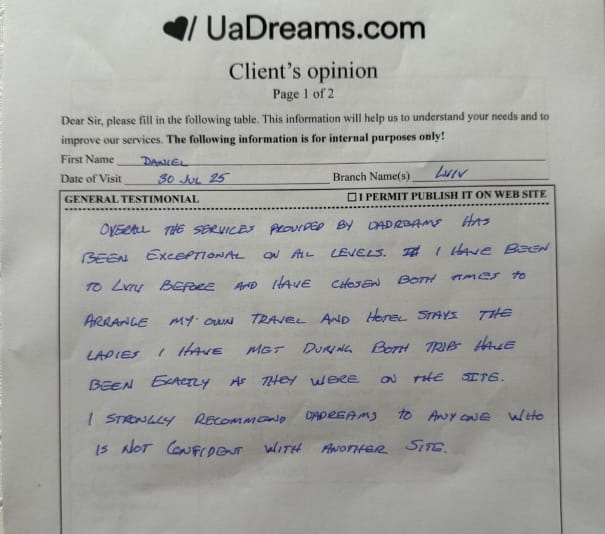 UaDreams.com
Client's opinion
Page 1 of 2
Dear Sir, please fill in the following table. This information will help us to understand your needs and to
improve our services. The following information is for internal purposes only!
First Name DANIEL
Date of Visit 30 JUL 25 Branch Name(s) LVIV
GENERAL TESTIMONIAL ☐ I PERMIT PUBLISH IT ON WEB SITE
OVERALL THE SERVICES PROVIDED BY UADREAMS HAS
BEEN EXCEPTIONAL ON ALL LEVELS. I HAVE BEEN
TO LVIV BEFORE AND HAVE CHOSEN BOTH TIMES TO
ARRANGE MY OWN TRAVEL AND HOTEL STAYS THE
LADIES I HAVE MET DURING BOTH TRIPS HAVE
BEEN EXACTLY AS THEY WERE ON THE SITE.
I STRONGLY RECOMMEND UADREAMS TO ANYONE WHO
IS NOT CONFIDENT WITH ANOTHER SITE.